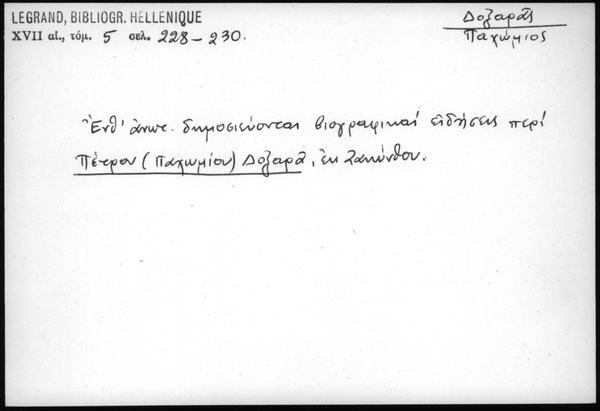 LEGRAND, BIBLIOGR. HELLENIQUE
XVII αἰ., τόμ. 5 σελ. 228-230.
Δοξαρᾶς
Παχώμιος
Ἔνθ' ἀνωτ. δημοσιεύονται βιογραφικαί εἰδήσεις περί
Πέτρου (Παχωμίου) Δοξαρᾶ, ἐκ Ζακύνθου.